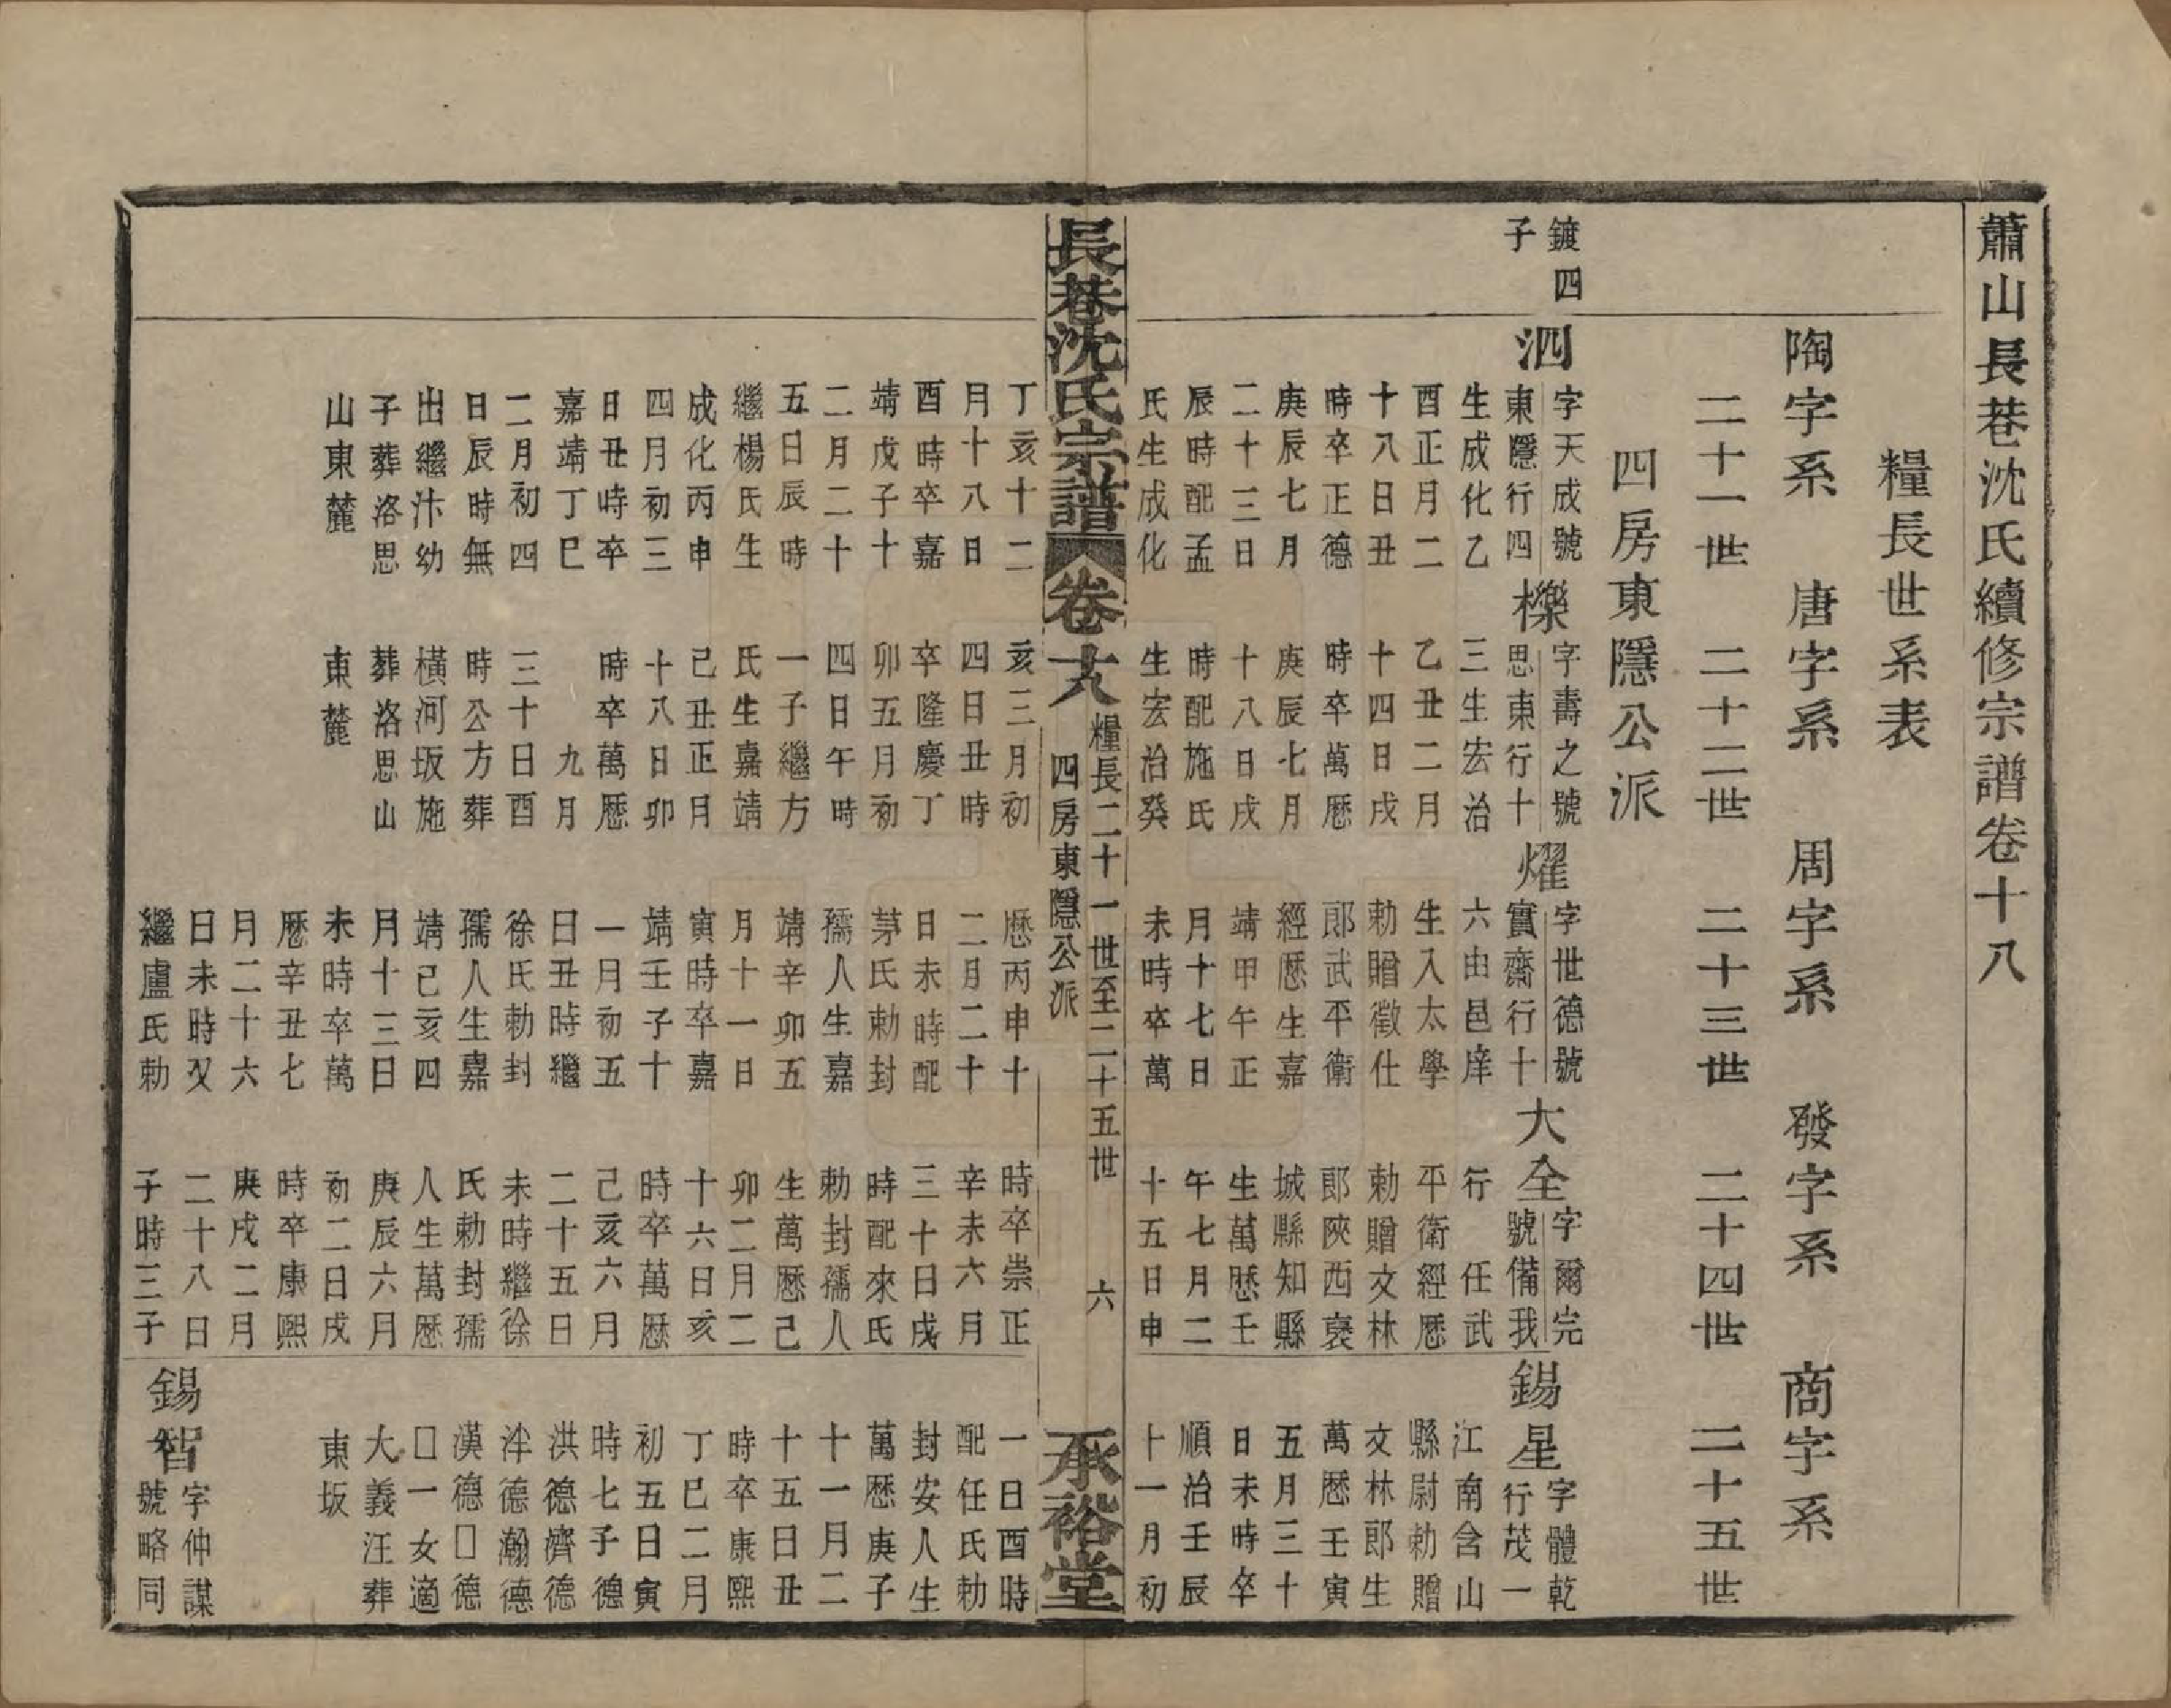 蕭山長巷沈氏續修宗譜卷十八
糧長世系表
陶字系　唐字系　周字系　發字系　商字系
二十一世　二十二世　二十三世　二十四世　二十五世
四房東隱公派
鍍四
子
泗
字天成號
東隱行四
生成化乙
酉正月二
十八日丑
時卒正德
庚辰七月
二十三日
辰時配孟
氏生成化
丁亥十二
月十八日
酉時卒嘉
靖戊子十
二月二十
五日辰時
繼楊氏生
成化丙申
四月初三
日丑時卒
嘉靖丁巳
二月初四
日辰時無
出繼汴幼
子葬洛思
山東麓
櫟
字壽之號
思東行十
三生宏治
乙丑二月
十四日戌
時卒萬歷
庚辰七月
十八日戌
時配施氏
生宏治癸
亥三月初
四日丑時
卒隆慶丁
卯五月初
四日午時
一子繼方
氏生嘉靖
己丑正月
十八日卯
時卒萬歷
九月
三十日酉
時公方葬
橫河坂施
葬洛思山
東麓
燿
字世德號
實齋行十
六由邑庠
生入太學
勅贈徵仕
郎武平衛
經歷生嘉
靖甲午正
月十七日
未時卒萬
歷丙申十
二月二十
日未時配
茅氏勅封
孺人生嘉
靖辛卯五
月十一日
寅時卒嘉
靖壬子十
一月初五
日丑時繼
徐氏勅封
孺人生嘉
靖己亥四
月十三日
未時卒萬
歷辛丑七
月二十六
日未時又
繼盧氏勅
大全
字爾完
號備我
行　任武
平衛經歷
勅贈文林
郎陝西褒
城縣知縣
生萬歷壬
午七月二
十五日申
時卒崇正
辛未六月
三十日戌
時配來氏
勅封孺人
生萬歷己
卯二月二
十六日亥
時卒萬歷
己亥六月
二十五日
未時繼徐
氏勅封孺
人生萬歷
庚辰六月
初二日戌
時卒康熙
庚戌二月
二十八日
子時三子
錫星
字體乾
行茂一
江南含山
縣尉勅贈
文林郎生
萬歷壬寅
五月三十
日未時卒
順治壬辰
十一月初
一日酉時
配任氏勅
封安人生
萬歷庚子
十一月二
十五日丑
時卒康熙
丁巳二月
初五日寅
時七子德
洪德濟德
泮德瀚德
漢德□德
□一女適
大義汪葬
東坂
錫智
字仲謀
號略同
長巷沈氏宗譜
卷十八
糧長二十一世至二十五世
四房東隱公派
六
承裕堂